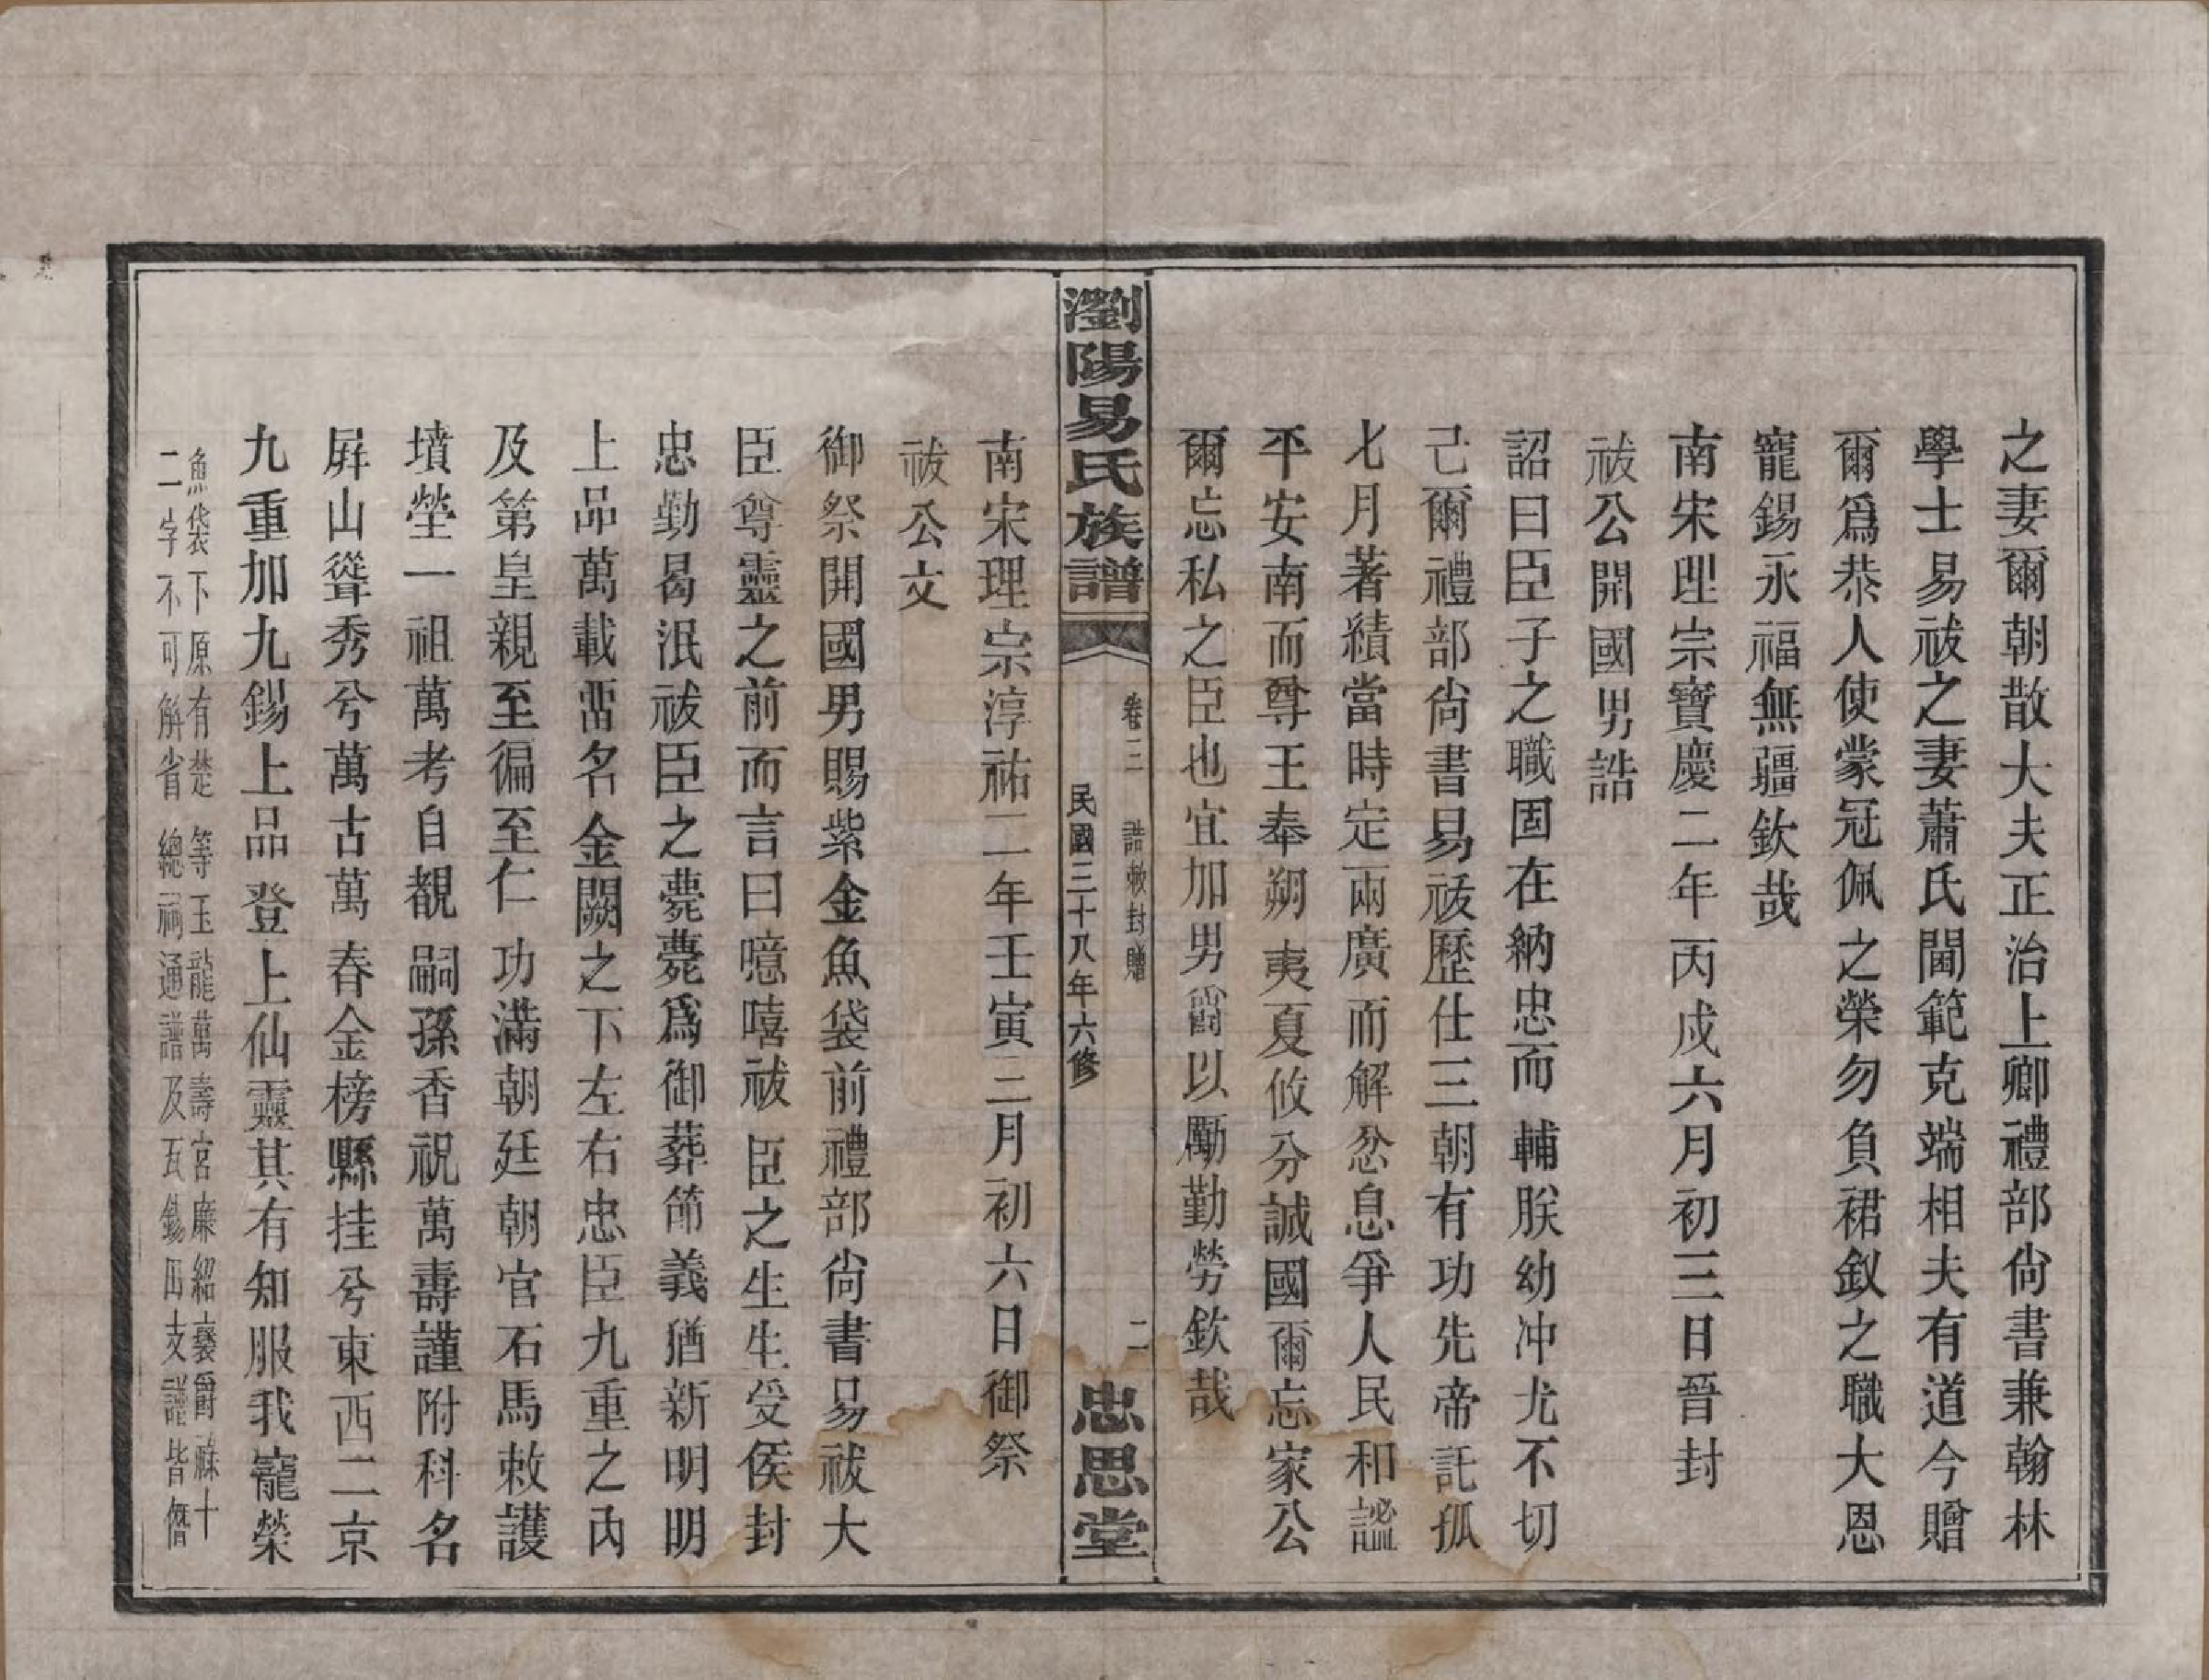 之妻爾朝散大夫正治上卿禮部尙書兼翰林
學士易祓之妻蕭氏閫範克端相夫有道今贈
爾爲恭人使蒙冠佩之榮勿負裙釵之職大恩
寵錫永福無疆欽哉
南宋理宗寶慶二年丙戌六月初三日晉封
祓公開國男誥
詔曰臣子之職固在納忠而輔朕幼冲尤不切
己爾禮部尙書易祓歷仕三朝有功先帝託孤
七月著績當時定兩廣而解忿息爭人民和謐
平安南而尊王奉朔夷夏攸分誠國爾忘家公
爾忘私之臣也宜加男爵以勵勤勞欽哉
瀏陽易氏族譜
卷三 誥敕封贈 二
民國三十八年六修
忠思堂
南宋理宗淳祐二年壬寅三月初六日御祭
祓公文
御祭開國男賜紫金魚袋前禮部尙書易祓大
臣尊靈之前而言曰噫嘻祓臣之生生受侯封
忠勤曷泯祓臣之薨薨爲御葬節義猶新明明
上品萬載畱名金闕之下左右忠臣九重之內
及第皇親至徧至仁功滿朝廷朝官石馬敕護
墳塋一祖萬考自覩嗣孫香祝萬壽謹附科名
屛山聳秀兮萬古萬春金榜縣挂兮東西二京
九重加九錫上品登上仙靈其有知服我寵榮
魚袋下原有楚等玉龍萬壽宮廉紹襲爵祿十
二字不可解省總祠通譜及瓦錫田支譜皆僭